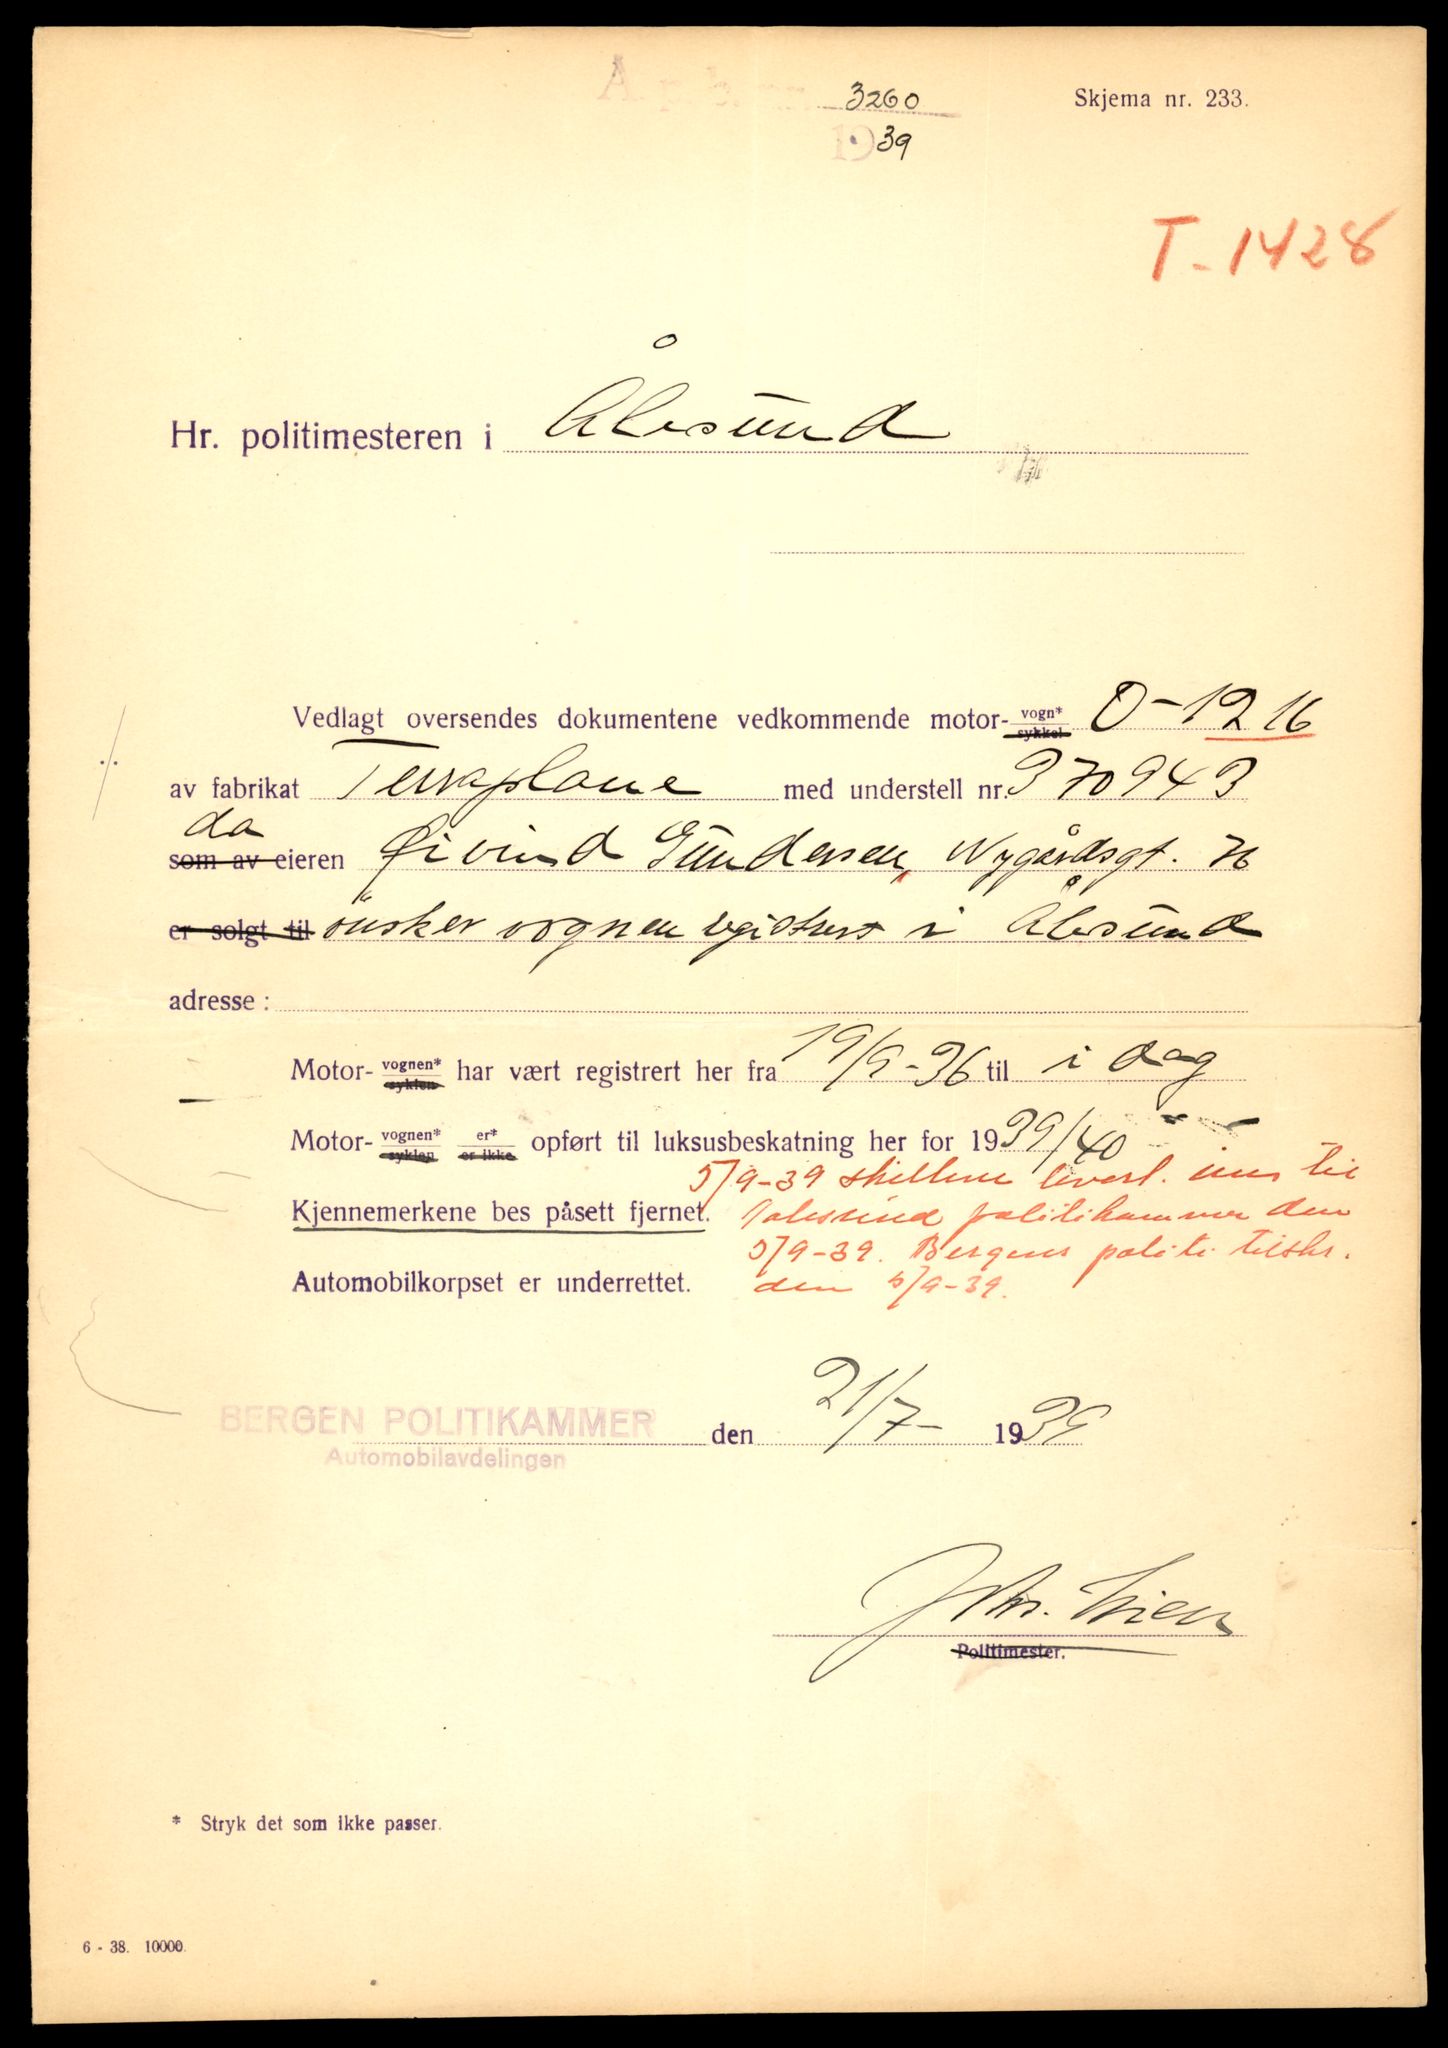 3260
Skjema nr. 233.
1939
T-1428
Hr. politimesteren i Ålesund
Vedlagt oversendes dokumentene vedkommende motor- vogn* sykkel O-1216
av fabrikat Terraplane med understell nr. 370943
da
som av eieren Øivind Gundersen, Nygårdsgt. 76
er solgt til önsker vognen registrert i Ålesund
adresse:
Motor- vognen* syklen har vært registrert her fra 19/9-36 til i dag
Motor- vognen* syklen er* er ikke opført til luksusbeskatning her for 1939/40
5/9-39 skiltene levert. inn til
Kjennemerkene bes påsett fjernet. Aalesund politikammer den
5/9-39. Bergens politi tilskr.
Automobilkorpset er underrettet. den 5/9-39.
BERGEN POLITIKAMMER den 21/7- 1939
Automobilavdelingen
Politimester.
* Stryk det som ikke passer.
6 - 38. 10000.